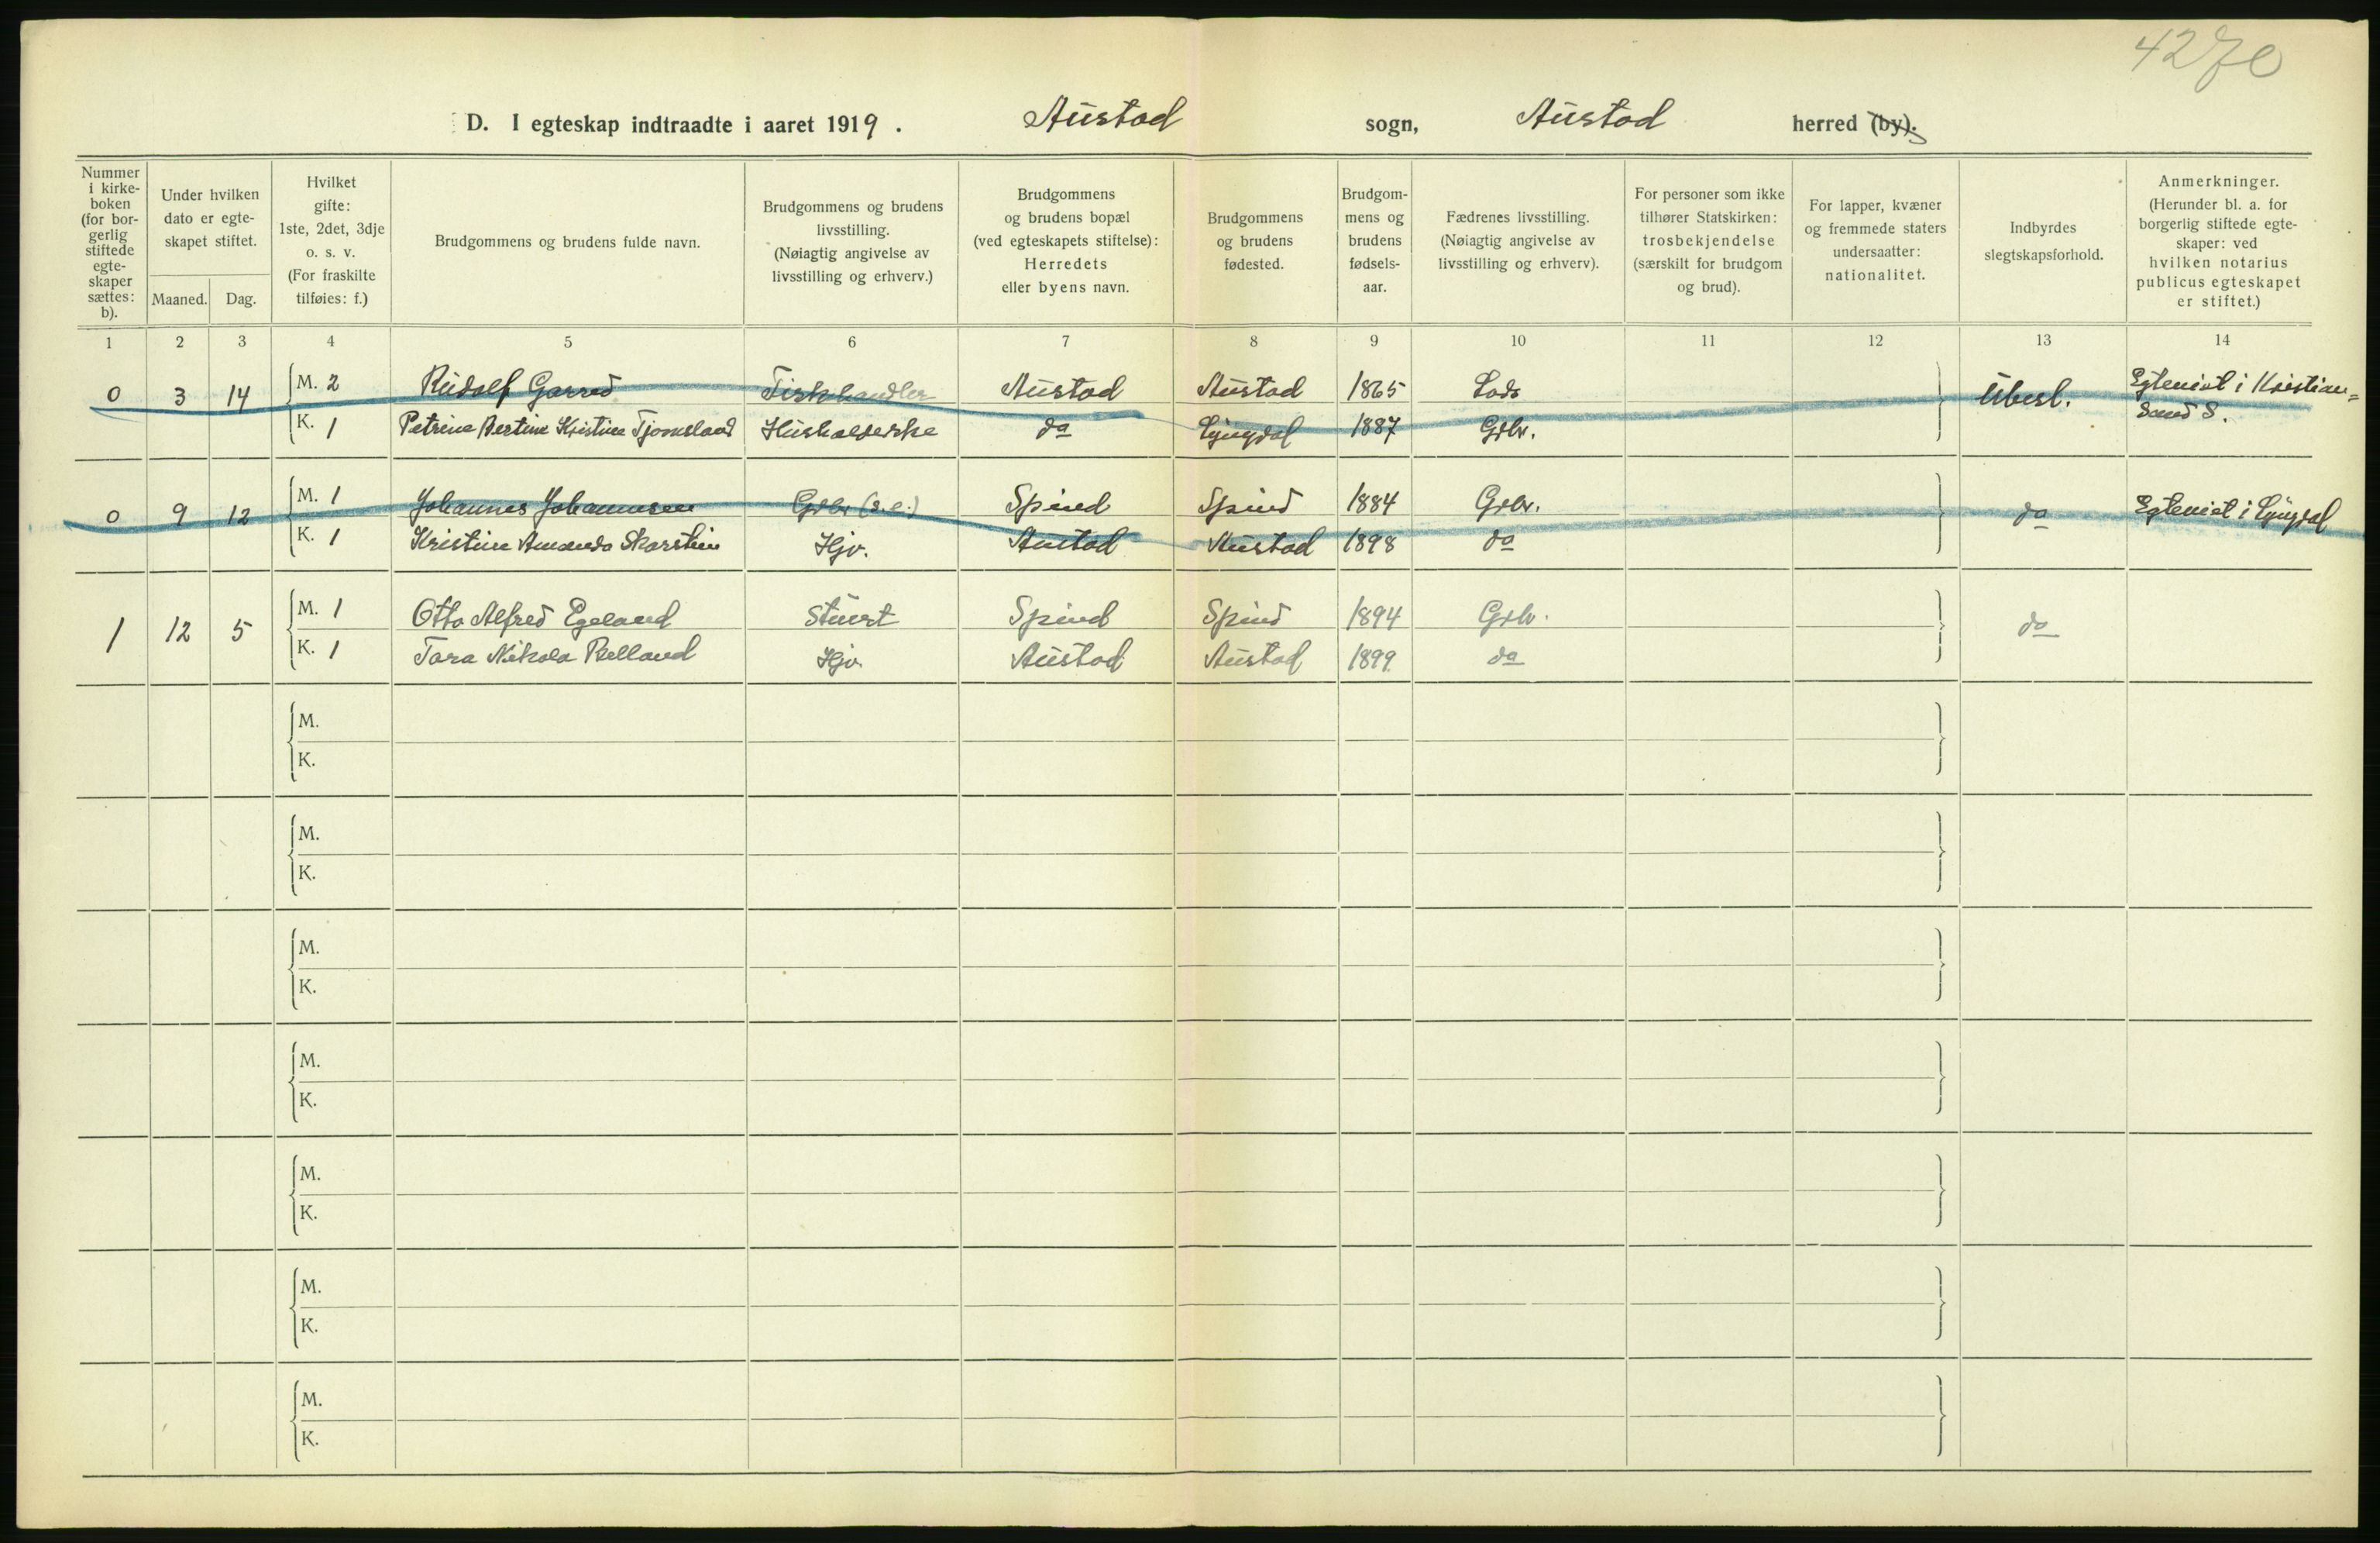 4270
D. I egteskap indtraadte i aaret 1919. Austad sogn, Austad herred (by).
Nummer i kirke-boken (for bor-gerlig stiftede egte-skaper sættes: b).
Under hvilken dato er egte-skapet stiftet.
Maaned. Dag.
Hvilket gifte: 1ste, 2det, 3dje o. s. v. (For fraskilte tilføies: f.)
Brudgommens og brudens fulde navn.
Brudgommens og brudens livsstilling. (Nøiagtig angivelse av livsstilling og erhverv.)
Brudgommens og brudens bopæl (ved egteskapets stiftelse): Herredets eller byens navn.
Brudgommens og brudens fødested.
Brudgom-mens og brudens fødsels-aar.
Fædrenes livsstilling. (Nøiagtig angivelse av livsstilling og erhverv).
For personer som ikke tilhører Statskirken: trosbekjendelse (særskilt for brudgom og brud).
For lapper, kvæner og fremmede staters undersaatter: nationalitet.
Indbyrdes slegtskapsforhold.
Anmerkninger. (Herunder bl. a. for borgerlig stiftede egte-skaper: ved hvilken notarius publicus egteskapet er stiftet.)
1 2 3 4 5 6 7 8 9 10 11 12 13 14
0 3 14 M. 2 Rudolf Garred Fiskhandler Austad Austad 1865 Lods Ubesl. Egteviet i Kristian=
K. 1 Petrine Bertine Kristine Tjomsland Husholderske do Lyngdal 1887 Grbr. sand S.
0 9 12 M. 1 Johannes Johannesen Grbr (s.e.) Spind Spind 1884 Grbr. do Egteviet i Lyngdal
K. 1 Kristine Amanda Skarstein Hjv. Austad Austad 1898 do
1 12 5 M. 1 Otto Alfred Egeland Stuert Spind Spind 1894 Grbr. do
K. 1 Tora Nikola Belland Hjv. Austad Austad 1899 do
M.
K.
M.
K.
M.
K.
M.
K.
M.
K.
M.
K.
M.
K.